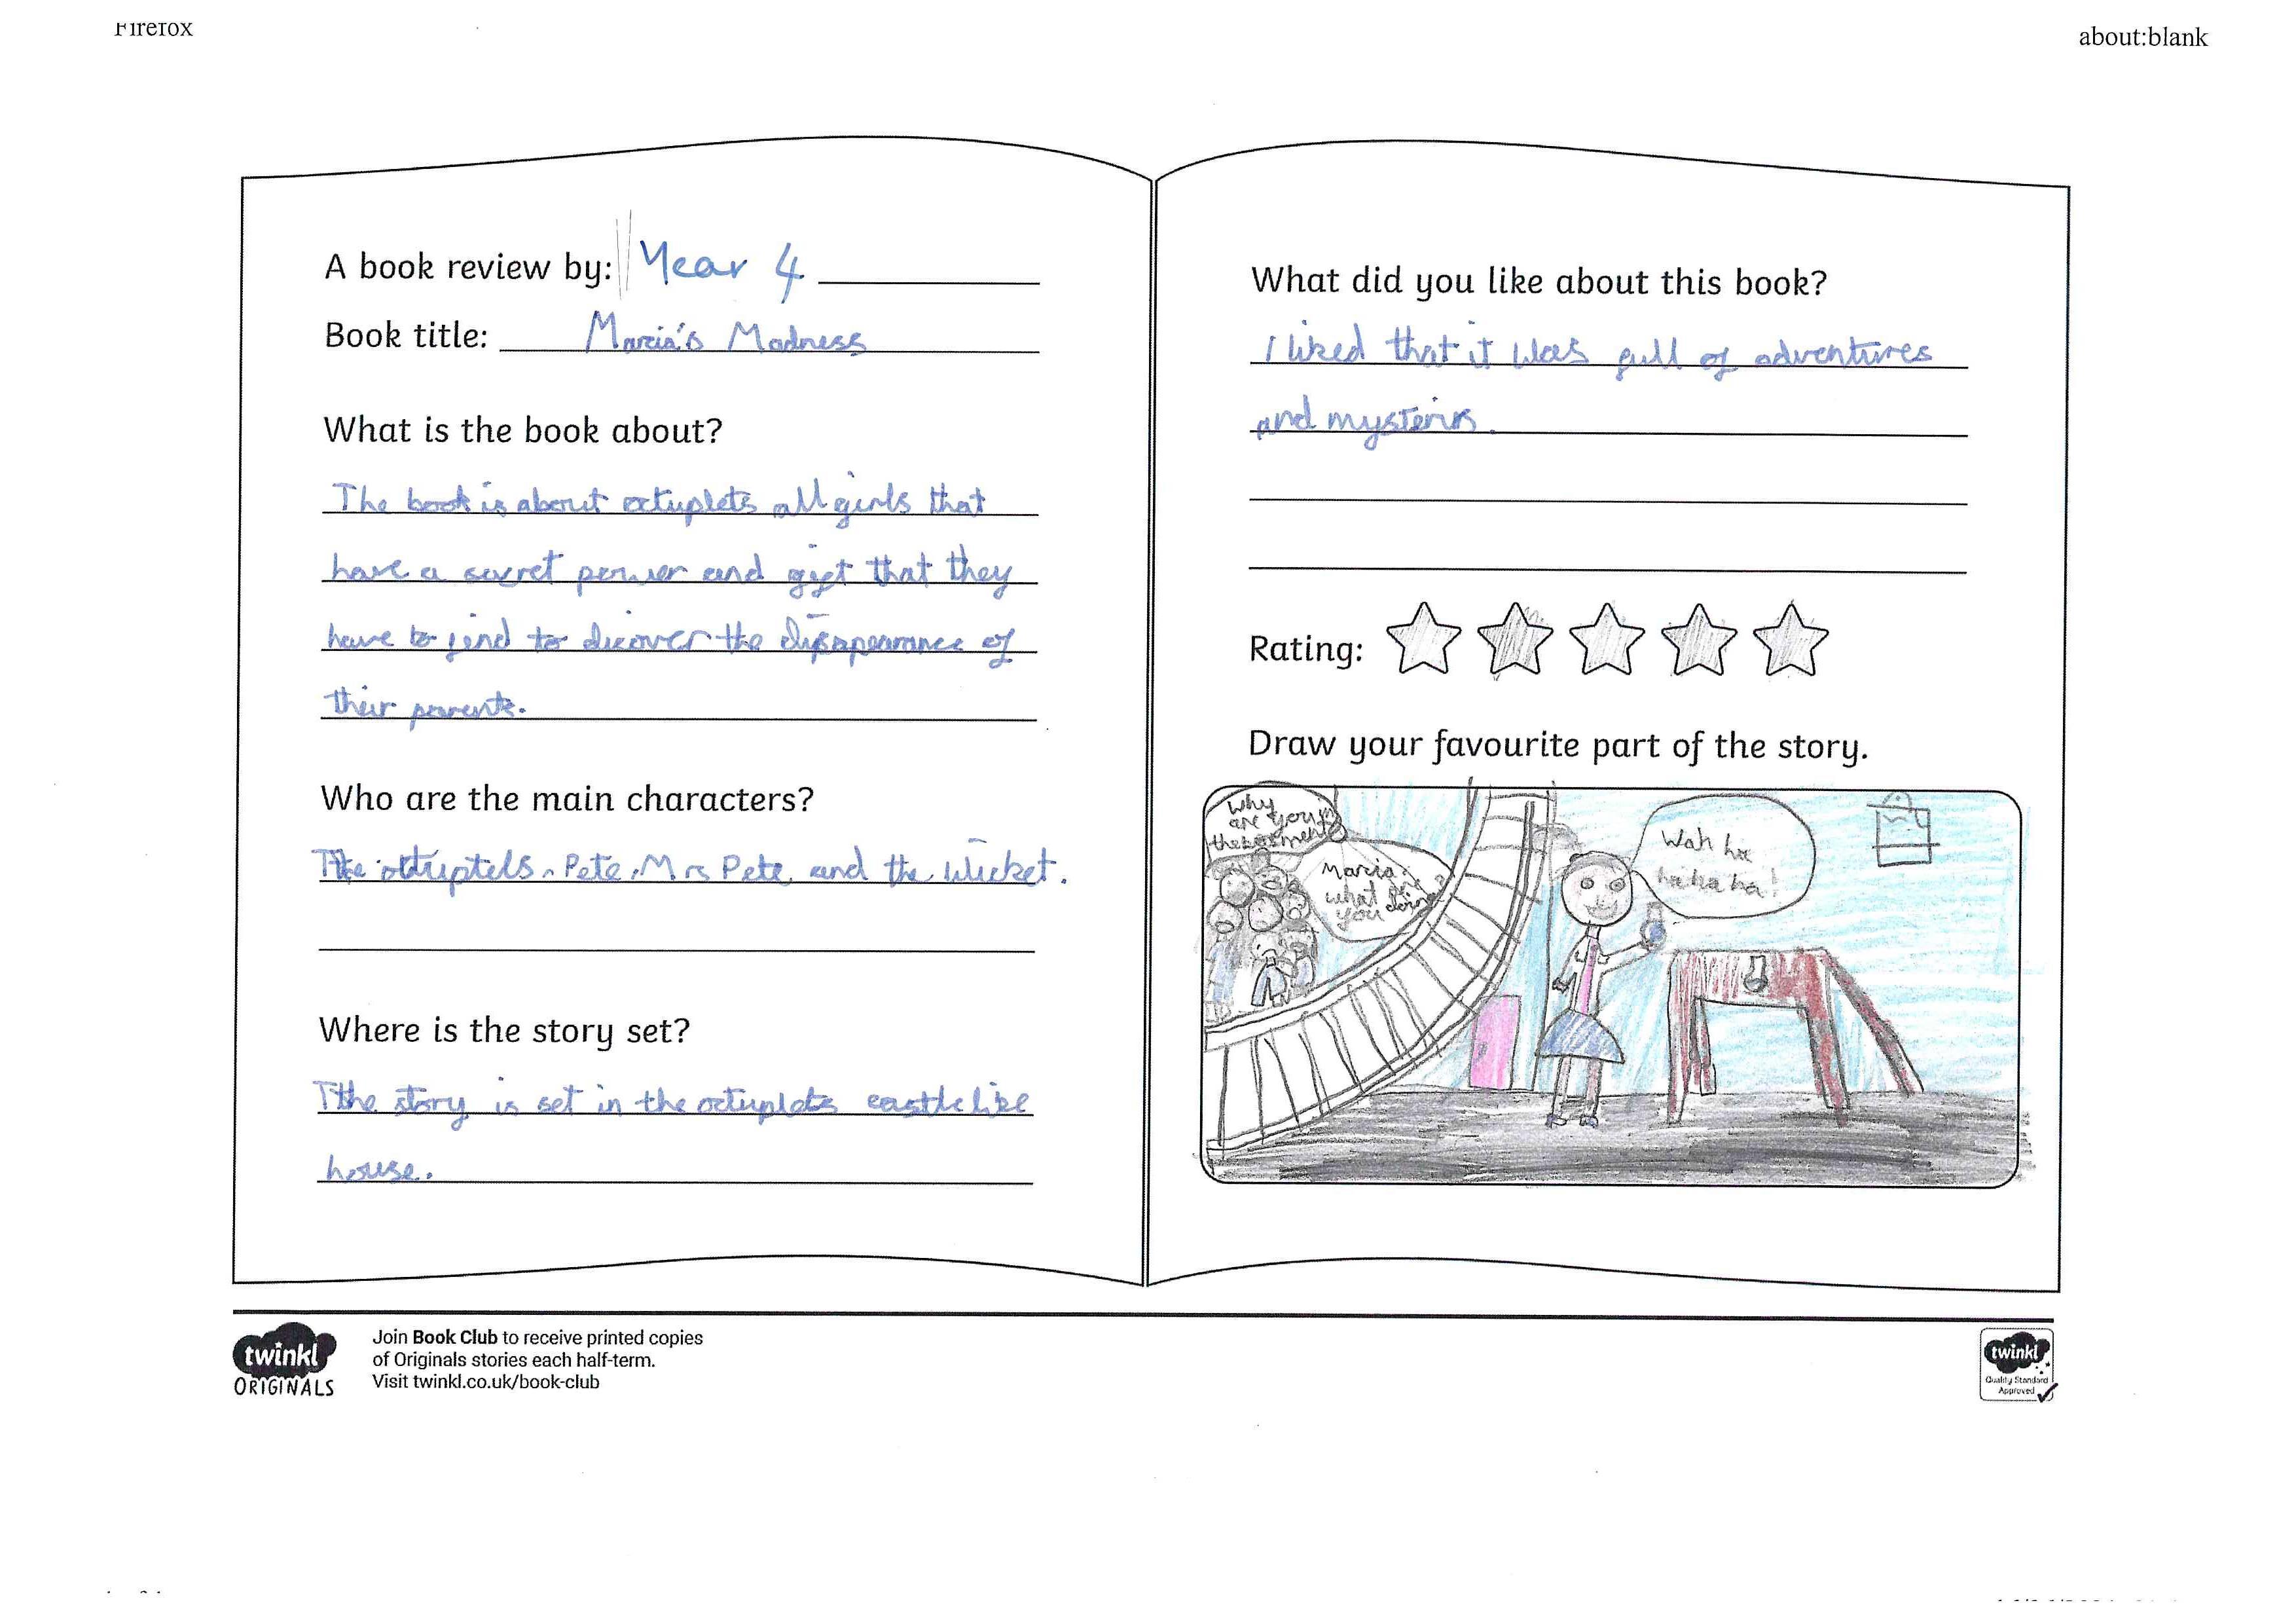 Firefox
about:blank
A book review by: Year 4
Book title: Marcia's Madness
What is the book about?
The book is about octuplets all girls that
have a secret power and gift that they
have to find to dicover the disapearance of
their parents.
Who are the main characters?
The octuplets, Pete, Mrs Pete and the Wicket.
Where is the story set?
The story is set in the octuplets castle like
house.
What did you like about this book?
I liked that it was full of adventures
and mysteries.
Rating:
Draw your favourite part of the story.
Why
are you in
the basment
Marcia
what are
you doing?
Wah ha
ha ha ha!
twinkl
ORIGINALS
Join Book Club to receive printed copies
of Originals stories each half-term.
Visit twinkl.co.uk/book-club
twinkl
Quality Standard
Approved